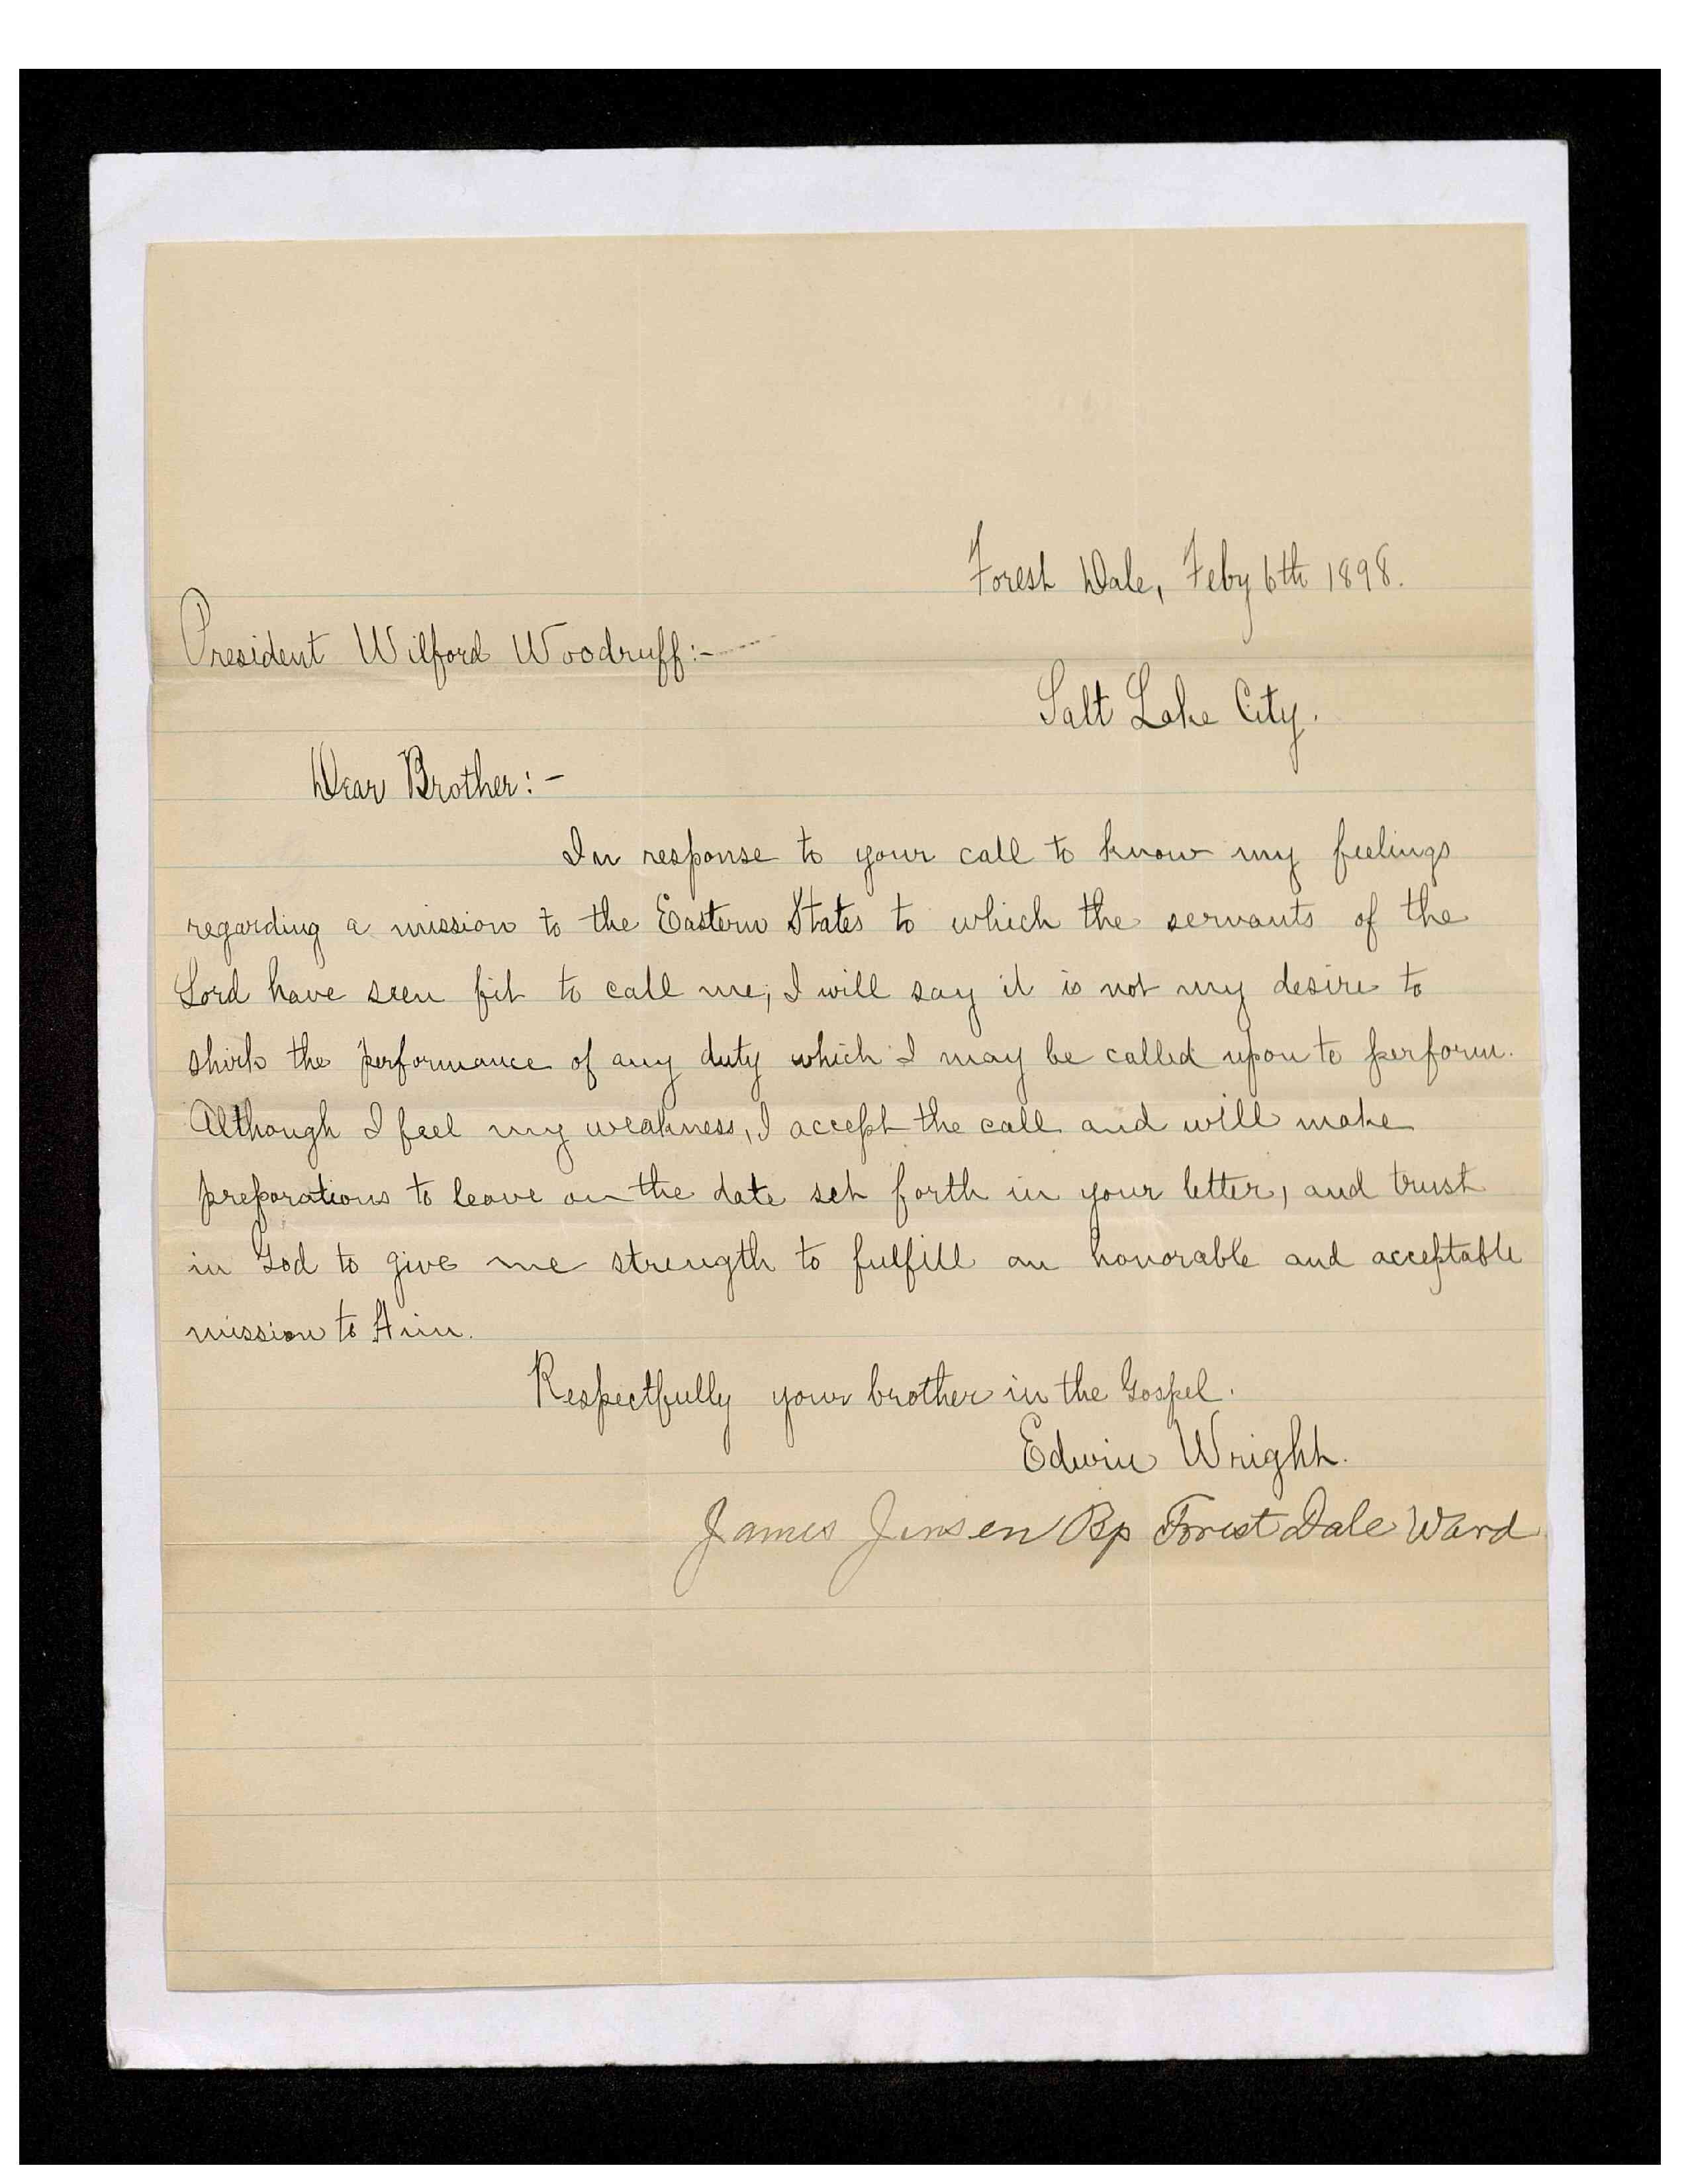 Forest Dale, Feby 6th 1898.
President Wilford Woodruff:-
Salt Lake City.
Dear Brother:-
In response to your call to know my feelings
regarding a mission to the Eastern States to which the servants of the
Lord have seen fit to call me, I will say it is not my desire to
shirk the performance of any duty which I may be called upon to perform.
Although I feel my weakness, I accept the call and will make
preparations to leave on the date set forth in your letter, and trust
in God to give me strength to fulfill an honorable and acceptable
mission to Him.
Respectfully your brother in the Gospel.
Edwin Wright.
James Jensen Bp Forest Dale Ward